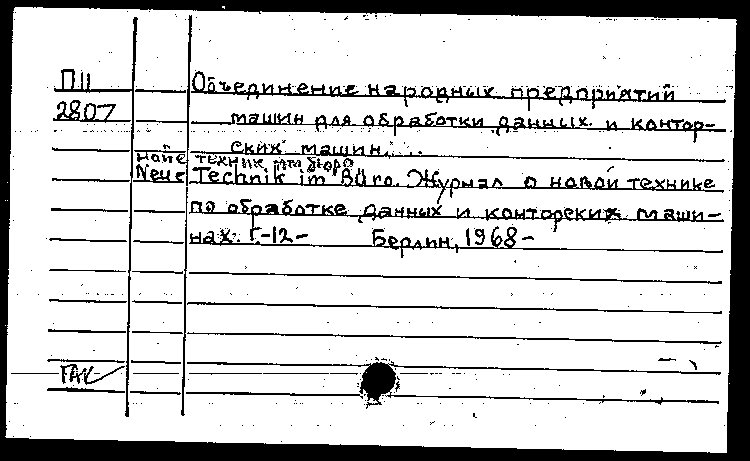 П II Объединение народных предприятий
2807 машин для обработки данных и контор-
ских машин...
нойе техник им бюро
Neue Technik im Büro. Журнал о новой технике
по обработке данных и конторских маши-
нах. Г.-12- Берлин, 1968-
ГАК